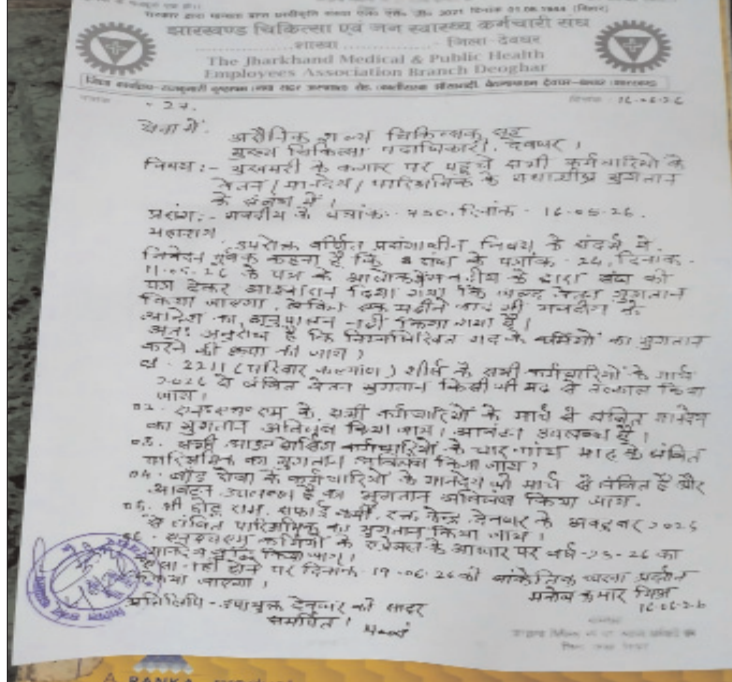 झारखण्ड चिकित्सा एवं जन स्वास्थ्य कर्मचारी संघ
शाखा .................. जिला - देवघर
The Jharkhand Medical & Public Health
Employees Association Branch Deoghar
- 27.
दिनांक - 16-06-26
सेवा में,
असैनिक शल्य चिकित्सक सह
मुख्य चिकित्सा पदाधिकारी, देवघर।
विषय:- भुखमरी के कगार पर पहुचे सभी कर्मचारियों के
वेतन/मानदेय/पारिश्रमिक के यथाशीघ्र भुगतान
के संबंध में।
प्रसंग:- भवदीय के पत्रांक- दिनांक - 16-05-26.
महाशय
उपरोक्त वर्णित प्रसंगाधीन विषय के संदर्भ में
निवेदन पूर्वक कहना है कि संघ के पत्रांक - 24, दिनांक-
11-05-26 के पत्र के आलोक में भवदीय के द्वारा संघ को
पत्र देकर आश्वासन दिया गया कि जल्द वेतन भुगतान
किया जाएगा, लेकिन एक महीने बाद भी भवदीय के
आदेश का अनुपालन नहीं किया गया है।
अतः अनुरोध है कि निम्नलिखित मद के कर्मियों का भुगतान
करने की कृपा की जाय।
2211 (परिवार कल्याण) शीर्ष के सभी कर्मचारियों के मार्च
2026 से लंबित वेतन भुगतान किसी भी मद से तत्काल किया
जाय।
02. एन०एच०एम के सभी कर्मचारियों के मार्च से लंबित मानदेय
का भुगतान अविलंब किया जाय। आवंटन उपलब्ध है।
03. सभी आउट सोर्सिंग कर्मचारियों के चार पांच माह के लंबित
पारिश्रमिक का भुगतान अविलंब किया जाय।
04. के कर्मचारियों के मानदेय भी मार्च से लंबित है और
आवंटन उपलब्ध है का भुगतान अविलंब किया जाय.
05. श्री राम, सफाई कर्मी, रक्त केन्द्र, देवघर के अक्टूबर 2025
से लंबित पारिश्रमिक का भुगतान किया जाय।
कर्मियों के के आधार पर वर्ष -25-26 का
मानदेय वृद्धि किया जाय।
नहीं होने पर दिनांक 19-06-26 को सांकेतिक धरना प्रदर्शन
किया जाएगा।
मनोज कुमार मिश्र
16-06-26
प्रतिलिपि - उपायुक्त देवघर को सादर
समर्पित।